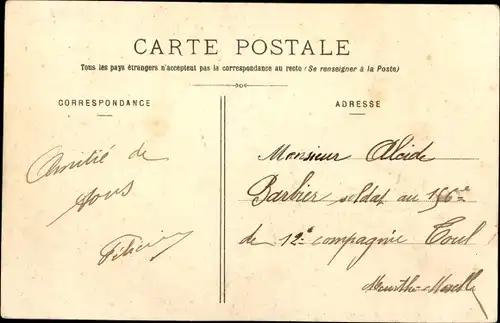 CARTE POSTALE
Tous les pays étrangers n'acceptent pas la correspondance au recto (Se renseigner à la Poste)
CORRESPONDANCE
Amitié de
tous
ADRESSE
Monsieur Alcide
Barbier soldat au 156e
de 12e compagnie Toul
Meurthe-Moselle